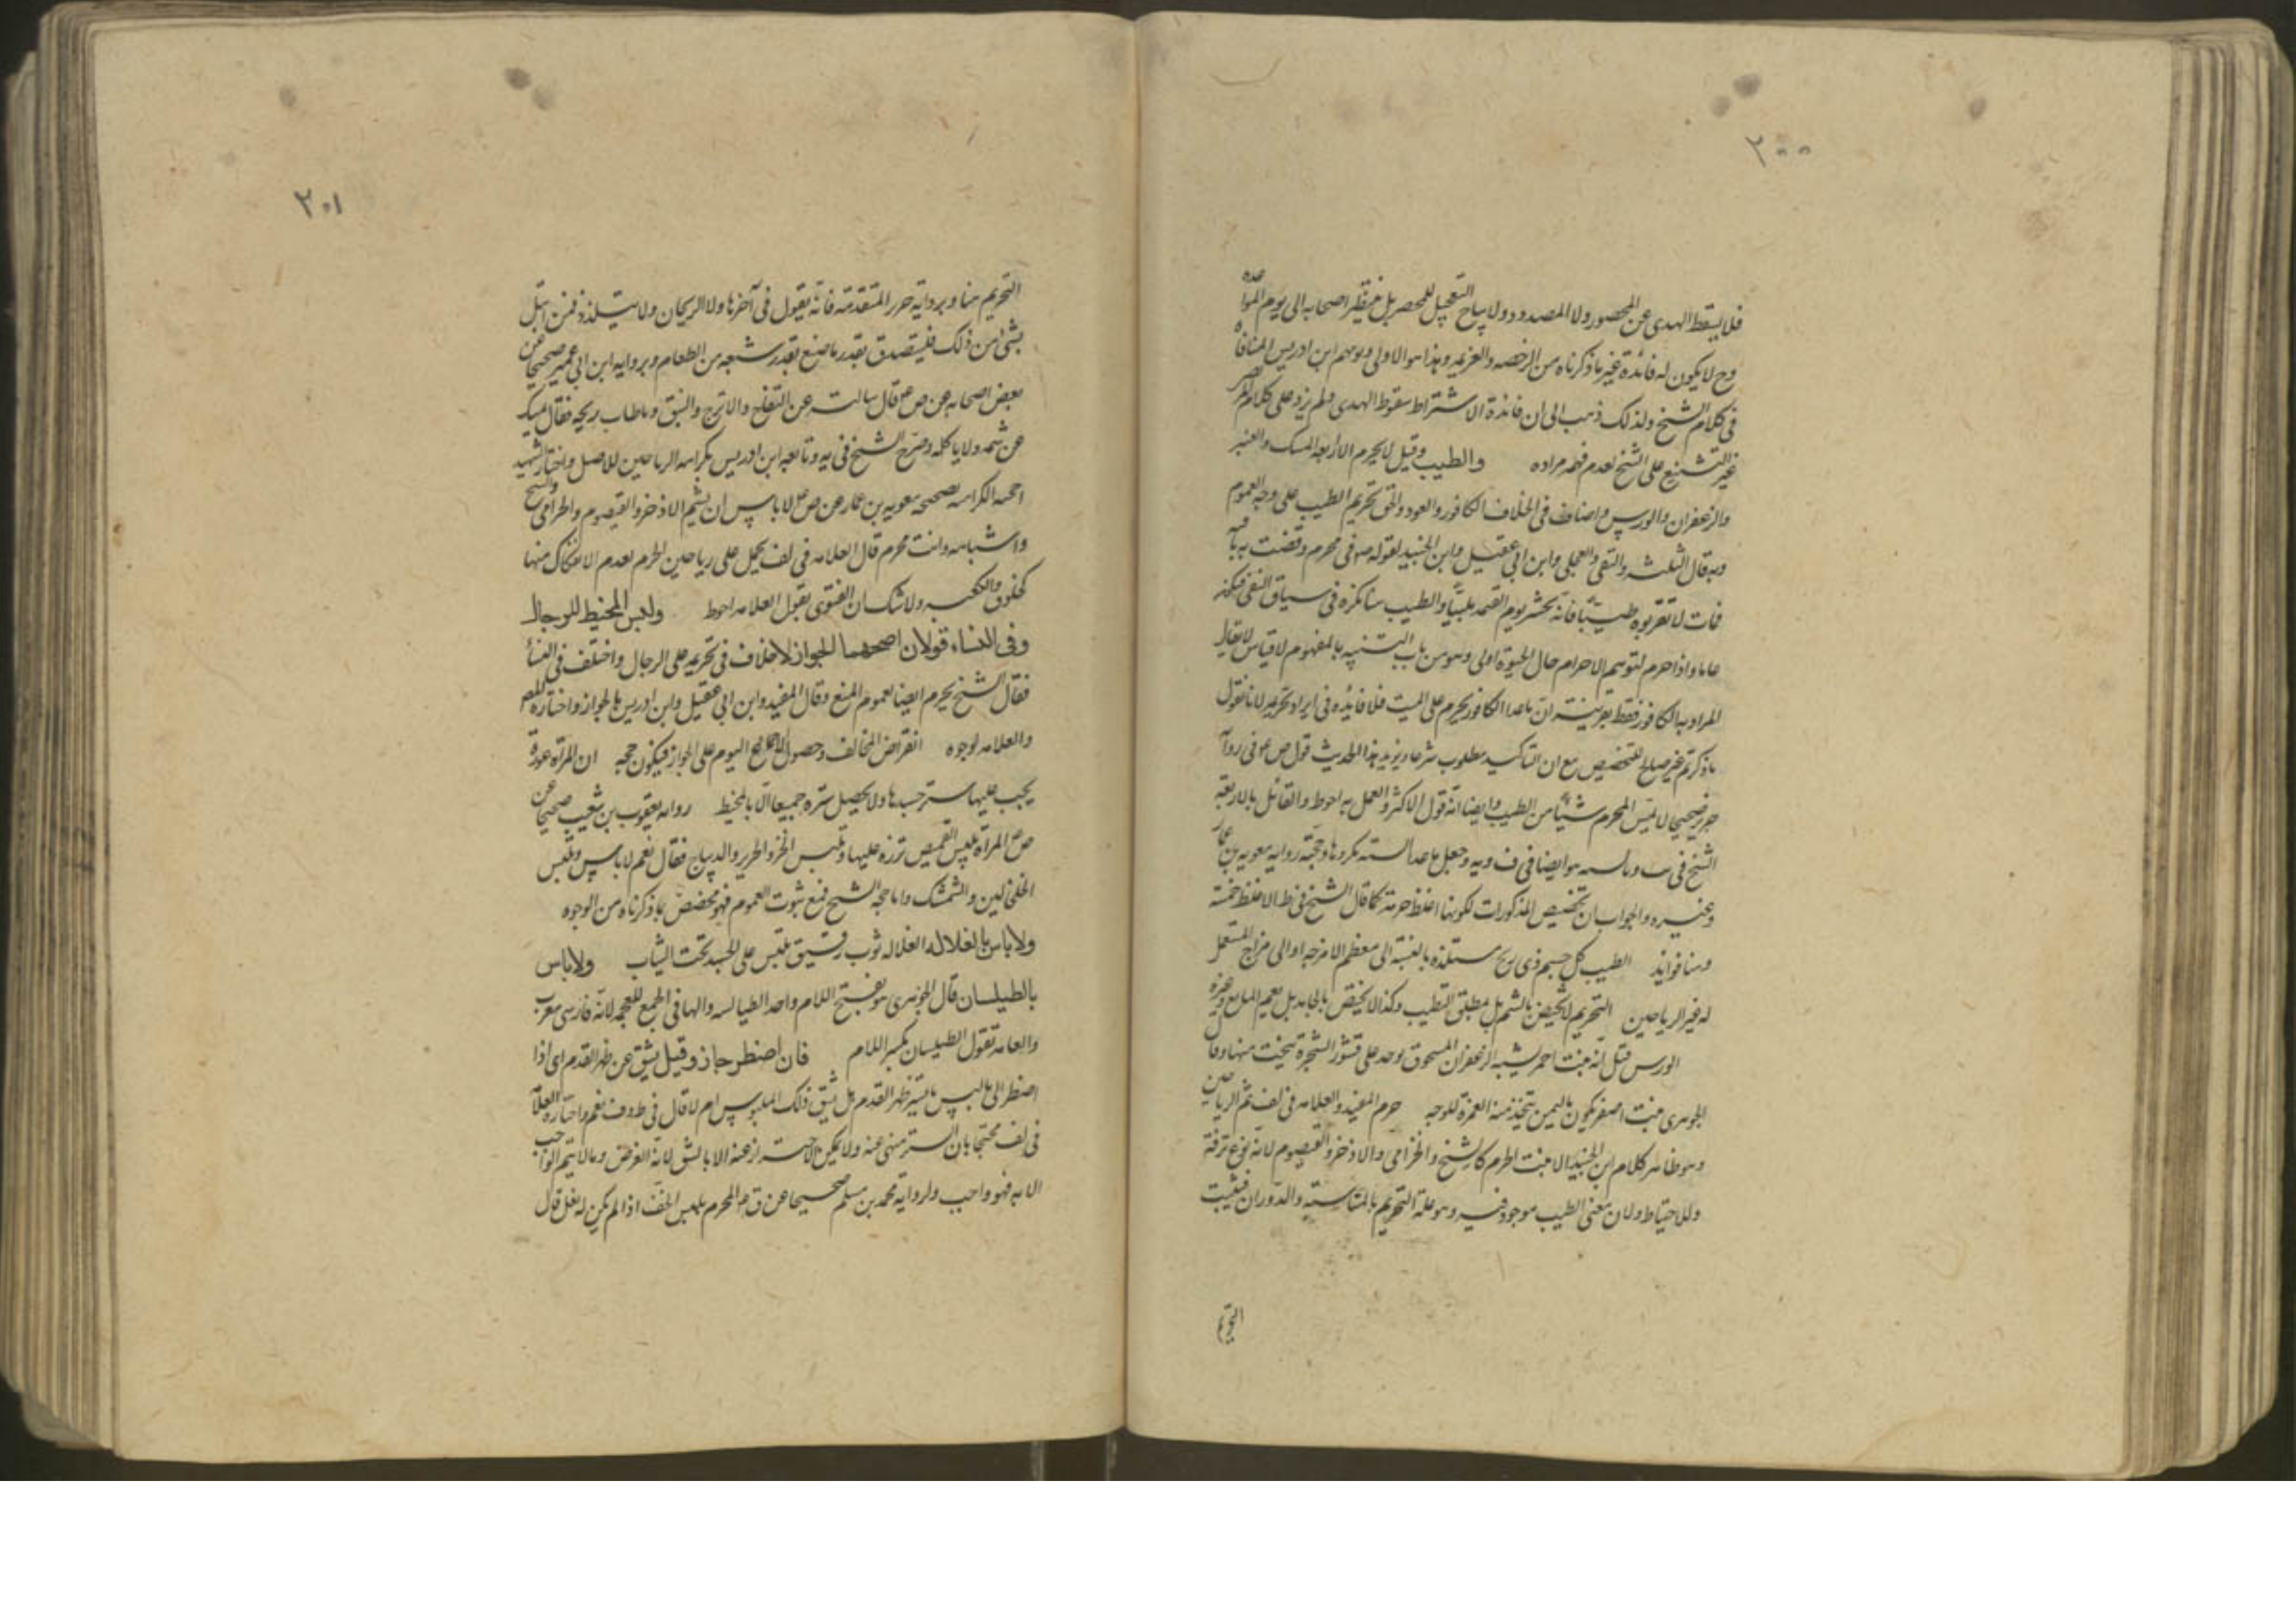 ٢٠٠
فلا يسقط الهدى عن المحصور ولا المصدود ولا يباح التعجيل للمحصر بل ينتظر اصحابه الى يوم المواعده
وح لا يكون له فائدة غير ما ذكرناه من الرخصه والعزيمه وهذا هو الاولى وتوهم ابن ادريس المنافاة
فى كلام الشيخ ولذلك ذهب الى ان فائدة الاشتراط سقوط الهدى ولم يزد على كلام
غير التشنيع على الشيخ لعدم فهمه مراده والطيب وقيل لا يحرم الا اربعه المسك والعنبر
والزعفران والورس واضاف فى الخلاف الكافور والعود والحق تحريم الطيب على وجه العموم
وبه قال الثلثه والتقى والعجلى وابن ابى عقيل وابن الجنيد لقوله ص فى محرم وقصت به ناقته
فمات لا تقربوه طيبا فانه يحشر يوم القيمه ملبيا والطيب هنا نكره فى سياق النفى فيكون
عاما واذا حرم لتوهم الاحرام حال الحيوة اولى وهو من باب التنبيه بالمفهوم لا قياس لا يقال
المراد به الكافور فقط بقرينة ان ما عدا الكافور يحرم على الميت فلا فائده فى ايراد تحريمه لانا نقول
ما ذكرتم غير صالح للتخصيص مع ان التاكيد مطلوب شرعا ويؤيد هذا الحديث قول ص ع فى رواية
حريز صحيحا لا يمس المحرم شيئا من الطيب وايضا انه قول الاكثر والعمل به احوط والقائل بالاربعة
الشيخ فى وايضا فى ف ويه وجعل ما عدا الستة مكروها وحجته روايه معويه بن عمار
وغيره والجواب ان تخصيص المذكورات لكونها اغلظ حرمة كما قال الشيخ فى ط الاغلظ خمسة
وهنا فوايد الطيب كل جسم ذى ريح مستلذه بالنسبة الى معظم الامزجه او الى مزاج المستعمل
له غير الرياحين التحريم لا يختص بالشم بل مطلق التطيب وكذا لا يختص بالجامد بل يعم المايع وغيره
الورس قيل انه نبت احمر يشبه الزعفران المسحوق يوجد على قشور الشجرة ينحت منها وقال
الجوهرى نبت اصفر يكون باليمن يتخذ منه الغمرة للوجه حرم المفيد والعلامه فى لف شم الرياحين
وهو ظاهر كلام ابن الجنيد الا نبت الحرم كالشيخ والخزامى والاذخر والقيصوم لانه نوع ترفة
وللاحتياط ولان معنى الطيب موجود فيه وهو علة التحريم بالمناسبة والدوران فيثبت
التحريم
٢٠١
التحريم هنا وبرواية حريز المتقدمه فانه يقول فى آخرها ولا الريحان ولا يتلذذ فمن ابتلى
بشئ من ذلك فليتصدق بقدر ما صنع بقدر شبعه من الطعام وبروايه ابن ابى عمير صحيحا عن
بعض اصحابه عن ص ع قال سالته عن التفاح والاترج والنبق وما طاب ريحه فقال يمسك
عن شمه ولا ياكله وصرح الشيخ فى يه وتابعه ابن ادريس بكراهه الرياحين للاصل واختار الشهيد
الكراهه بصحيحه معويه بن عمار عن ص ع لا باس ان يشم الاذخر والقيصوم والخزامى والشيح
واشباهه وانت محرم قال العلامه فى لف يحمل على رياحين الحرم لعدم الانفكاك منها
كخلوق الكعبه ولا شك ان الفتوى بقول العلامه احوط ولبس المخيط للرجال
وفى النساء قولان اصحهما الجواز لا خلاف فى تحريمه على الرجال واختلف فى النساء
فقال الشيخ يحرم ايضا لعموم المنع وقال المفيد وابن ابى عقيل وابن ادريس بالجواز واختاره المص
والعلامه لوجوه انقراض المخالف وحصول الاجماع اليوم على الجواز فيكون حجه ان المرأة عورة
يجب عليها ستر جسدها ولا يحصل ستره جميعا الا بالمخيط رواه يعقوب بن شعيب صحيحا عن
ص ع المرأة تلبس القميص تزره عليها وتلبس الخز والحرير والديباج فقال نعم لا باس وتلبس
الخلخالين والشمشك واما حجه الشيخ فمنع ثبوت العموم فهو مخصص بما ذكرناه من الوجوه
ولا باس بالغلاله الغلاله ثوب رقيق تلبس على الجسد تحت الثياب ولا باس
بالطيلسان قال الجوهرى هو بفتح اللام واحد الطيالسه والها فى الجمع للعجمه لانه فارسى معرب
والعامه تقول الطيلسان بكسر اللام فان اضطر جاز وقيل يشق عن ظهر القدم اى اذا
اضطر الى لبس ما يستر ظهر القدم هل يشق ذلك الملبوس ام لا قال فى ط وف نعم واختاره العلامة
فى لف محتجا بان الستر منهى عنه ولا يمكن الاحتراز عنه الا بالشق لانه الفرض وما لا يتم الواجب
الا به فهو واجب ولرواية محمد بن مسلم صحيحا عن ق ع المحرم يلبس الخف اذا لم يكن له نعل قال